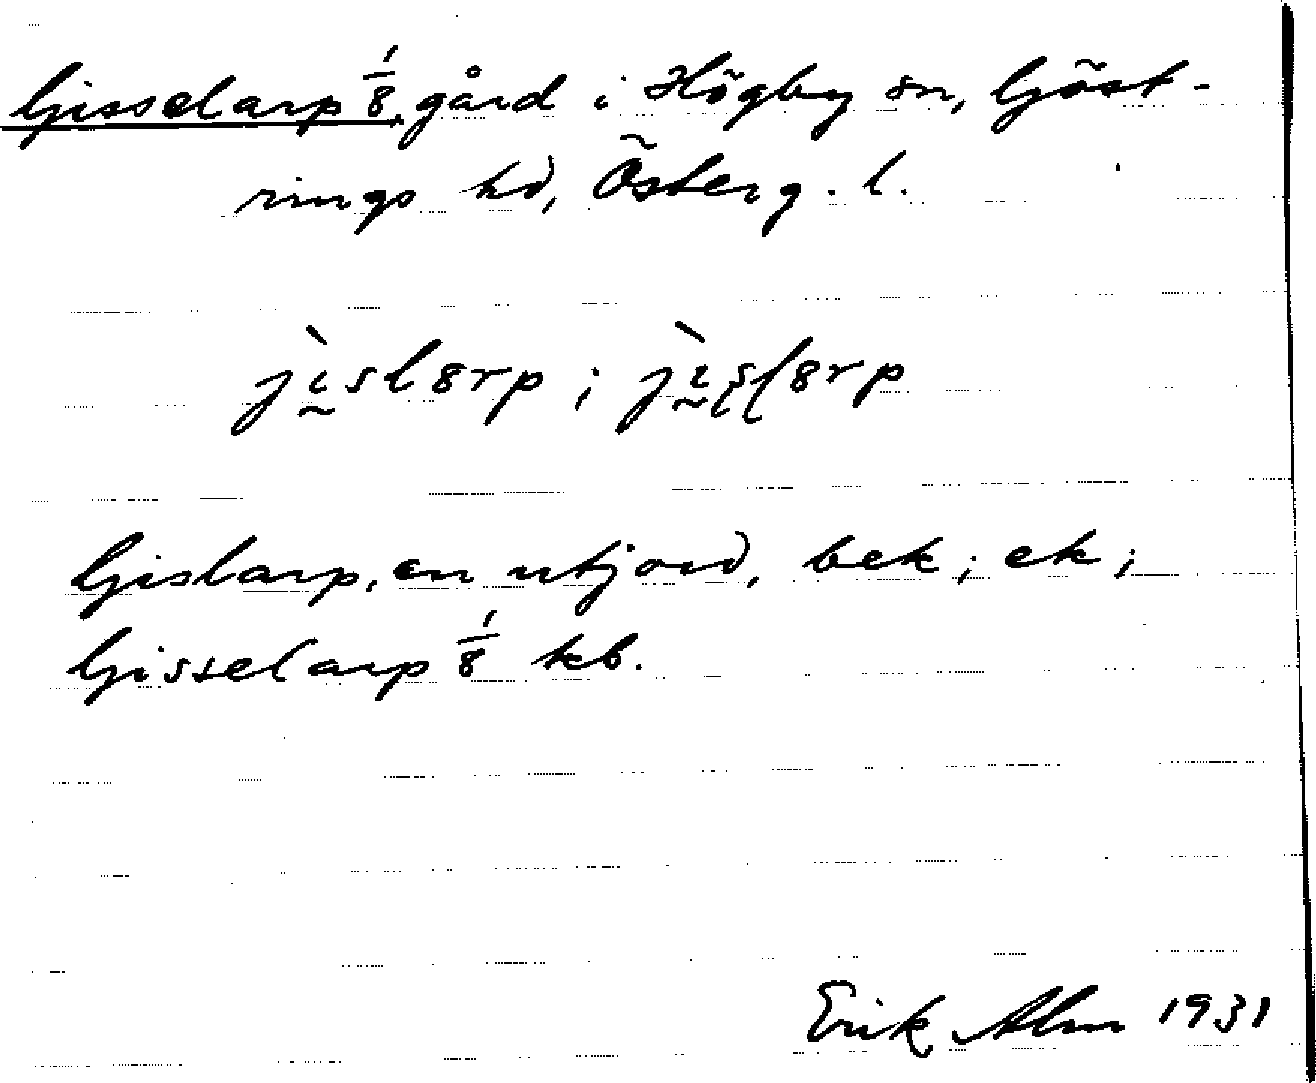 Gisselarp 1/8, gård i Högby sn, Göst-
rings hd, Österg. l.
jìslarp; jìslarp
Gislarp, en utjord, bek; ek;
Gisselarp 1/8 kb.
Erik Alm 1931